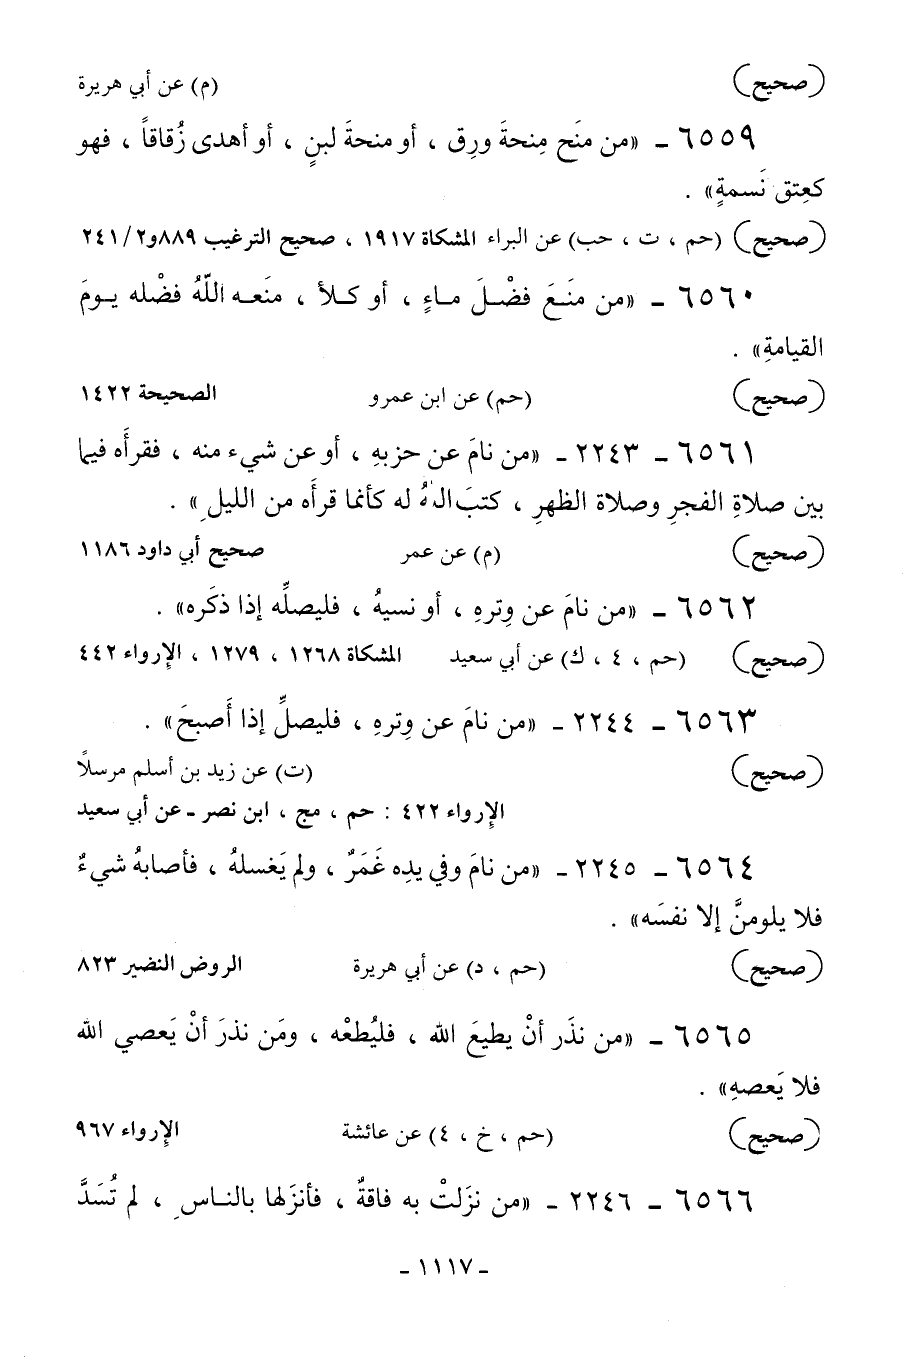 (صحيح) (م) عن أبي هريرة
٦٥٥٩ ـ «من منَح مِنحةَ ورِق ، أو منحةَ لبنٍ ، أو أهدى زُقاقاً ، فهو
كعِتق نَسمةٍ» .
(صحيح) (حم ، ت ، حب) عن البراء المشكاة ١٩١٧ ، صحيح الترغيب ٨٨٩و٢/٢٤١
٦٥٦٠ ـ «من منَـعَ فضْـلَ مـاءٍ ، أو كـلأ ، منَعـه اللّهُ فضْله يـومَ
القيامةِ» .
(صحيح) (حم) عن ابن عمرو الصحيحة ١٤٢٢
٦٥٦١ ـ ٢٢٤٣ ـ «من نامَ عن حزبهِ ، أو عن شيء منه ، فقرأَه فيما
بين صلاةِ الفجرِ وصلاة الظهرِ ، كتبَ اللهُ له كأنما قرأَه من الليلِ» .
(صحيح) (م) عن عمر صحيح أبي داود ١١٨٦
٦٥٦٢ ـ «من نامَ عن وِترهِ ، أو نسيهُ ، فليصلِّه إذا ذكَره» .
(صحيح) (حم ، ٤ ، ك) عن أبي سعيد المشكاة ١٢٦٨ ، ١٢٧٩ ، الإرواء ٤٤٢
٦٥٦٣ ـ ٢٢٤٤ ـ «من نامَ عن وِترهِ ، فليصلِّ إذا أَصبحَ» .
(صحيح) (ت) عن زيد بن أسلم مرسلاً
الإرواء ٤٢٢ : حم ، مج ، ابن نصر ـ عن أبي سعيد
٦٥٦٤ ـ ٢٢٤٥ ـ «من نامَ وفي يدِه غَمَرٌ ، ولم يَغسلهُ ، فأصابهُ شيءٌ
فلا يلومنَّ إلا نفسَه» .
(صحيح) (حم ، د) عن أبي هريرة الروض النضير ٨٢٣
٦٥٦٥ ـ «من نذَر أنْ يطيعَ الله ، فليُطعْه ، ومَن نذرَ أنْ يَعصي الله
فلا يَعصهِ» .
(صحيح) (حم ، خ ، ٤) عن عائشة الإرواء ٩٦٧
٦٥٦٦ ـ ٢٢٤٦ ـ «من نزَلتْ به فاقةٌ ، فأنزَلها بالنـاسِ ، لم تُسَدَّ
ـ ١١١٧ ـ